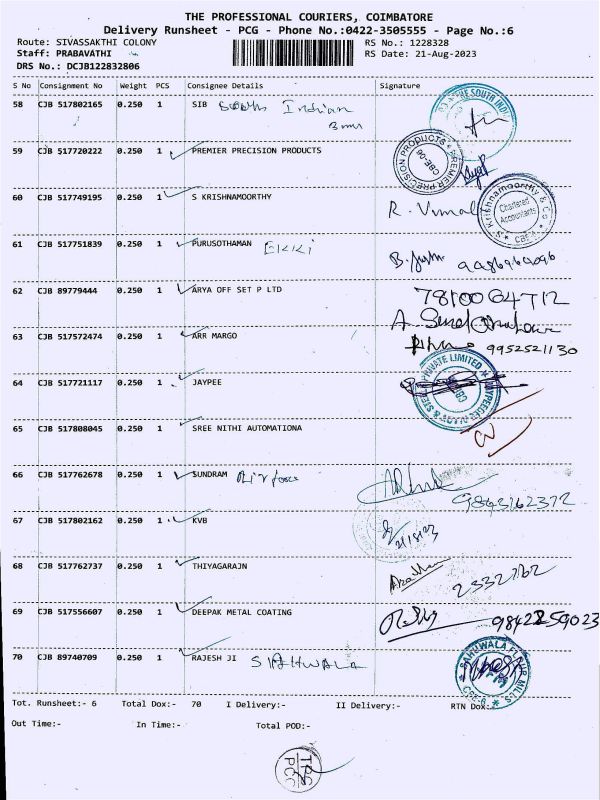 THE PROFESSIONAL COURIERS, COIMBATORE
Delivery Runsheet - PCG - Phone No.:0422-3505555 - Page No.:6
Route: SIVASSAKTHI COLONY RS No.: 1228328
Staff: PRABAVATHI RS Date: 21-Aug-2023
DRS No.: DCJB122832806
S No Consignment No Weight PCS Consignee Details Signature
58 CJB 517802165 0.250 1 SIB South Indian
59 CJB 517720222 0.250 1 PREMIER PRECISION PRODUCTS
PREMIER PRECISION PRODUCTS
60 CJB 517749195 0.250 1 S KRISHNAMOORTHY R. Vimal
S. Krishnamoorthy & Co Chartered Accountants
61 CJB 517751839 0.250 1 PURUSOTHAMAN
62 CJB 89779444 0.250 1 ARYA OFF SET P LTD
63 CJB 517572474 0.250 1 ARR MARGO 9952521130
64 CJB 517721117 0.250 1 JAYPEE
PRIVATE LIMITED
65 CJB 517808045 0.250 1 SREE NITHI AUTOMATIONA
66 CJB 517762678 0.250 1 SUNDRAM 9843162372
67 CJB 517802162 0.250 1 KVB
68 CJB 517762737 0.250 1 THIYAGARAJN
69 CJB 517556607 0.250 1 DEEPAK METAL COATING
70 CJB 89740709 0.250 1 RAJESH JI SAHUWALA
SAHUWALA FLOUR MILLS
Tot. Runsheet:- 6 Total Dox:- 70 I Delivery:- II Delivery:- RTN Dox:-
Out Time:- In Time:- Total POD:-
TPC
PCC